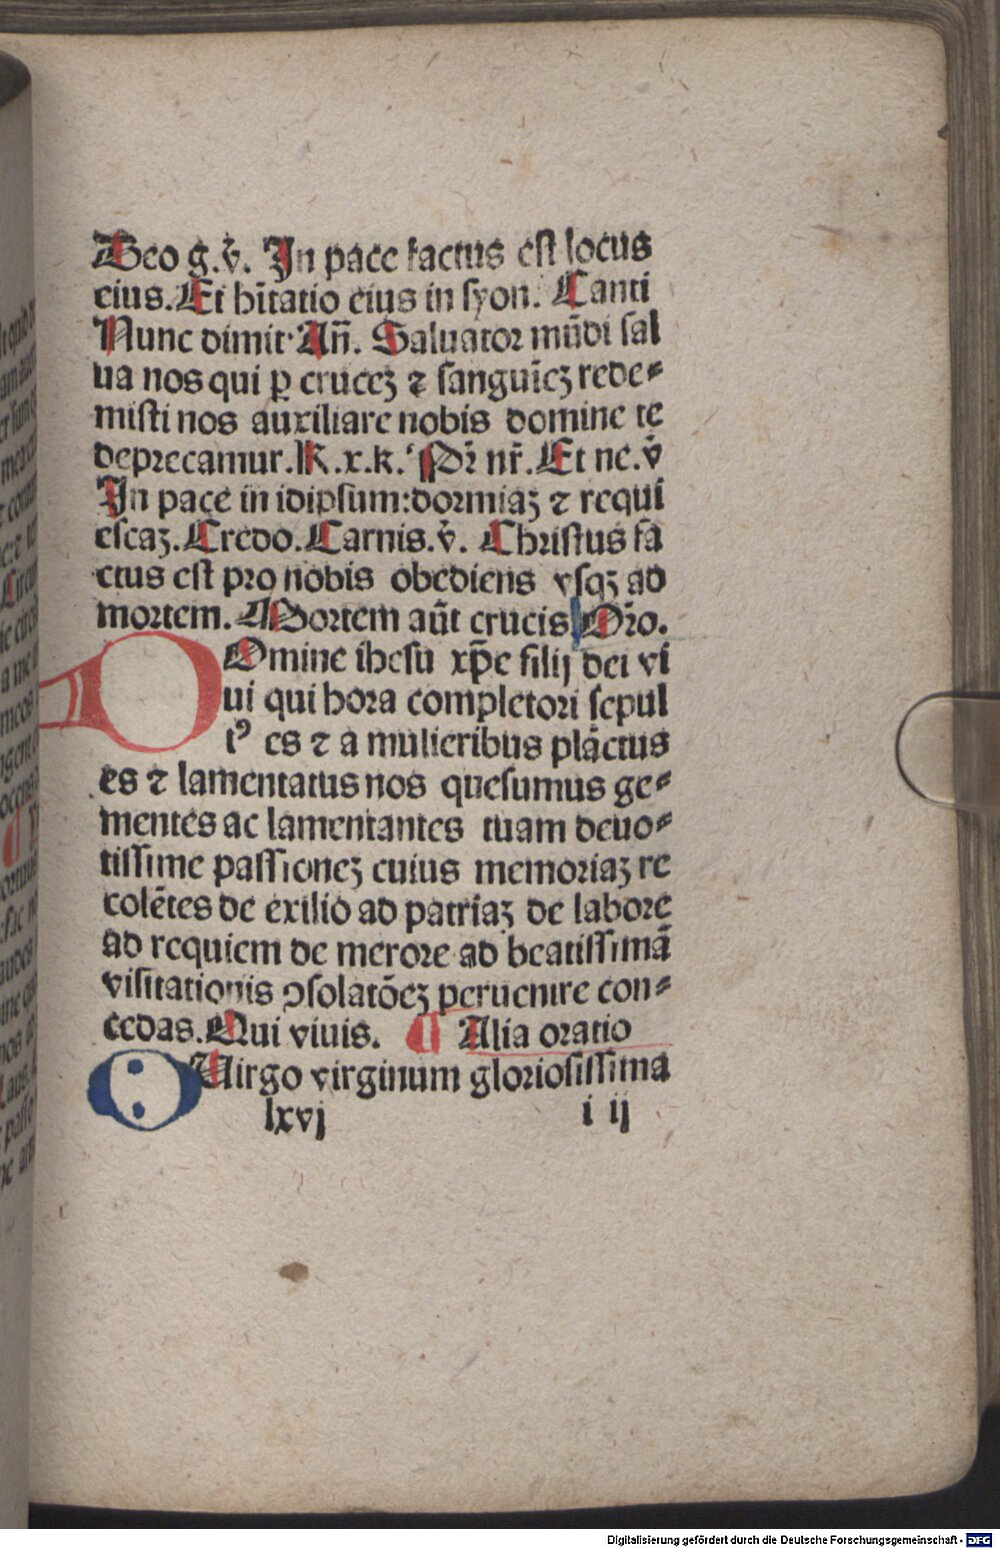 Deo g. v̄. In pace factus est locus
eius. Et hītatio eius in syon. Canti
Nunc dimit· Añ. Saluator mūdi sal
ua nos qui ꝑ crucēꝫ ⁊ sanguīeꝫ rede⸗
misti nos auxiliare nobis domine te
deprecamur. K. x. k. Pr̄ nr̄. Et ne. v̄
In pace in idipsum: dormiaꝫ ⁊ requi
escaꝫ. Credo. Carnis. v̄. Christus fa
ctus est pro nobis obediens vsqꝫ ad
mortem. Mortem aūt crucis Oro.
DOmine ihesu xp̄e filij dei vi
ui qui hora completorij sepul
tꝰ es ⁊ a mulieribus plāctus
es ⁊ lamentatus nos quesumus ge⸗
mentes ac lamentantes tuam deuo⸗
tissime passioneꝫ cuius memoriaꝫ re
colētes de exilio ad patriaꝫ de labore
ad requiem de merore ad beatissimā
visitationis ꝯsolatōeꝫ peruenire con⸗
cedas. Qui viuis. ¶ Alia oratio
O Uirgo virginum gloriosissima
lxvj i ij
Digitalisierung gefördert durch die Deutsche Forschungsgemeinschaft - DFG